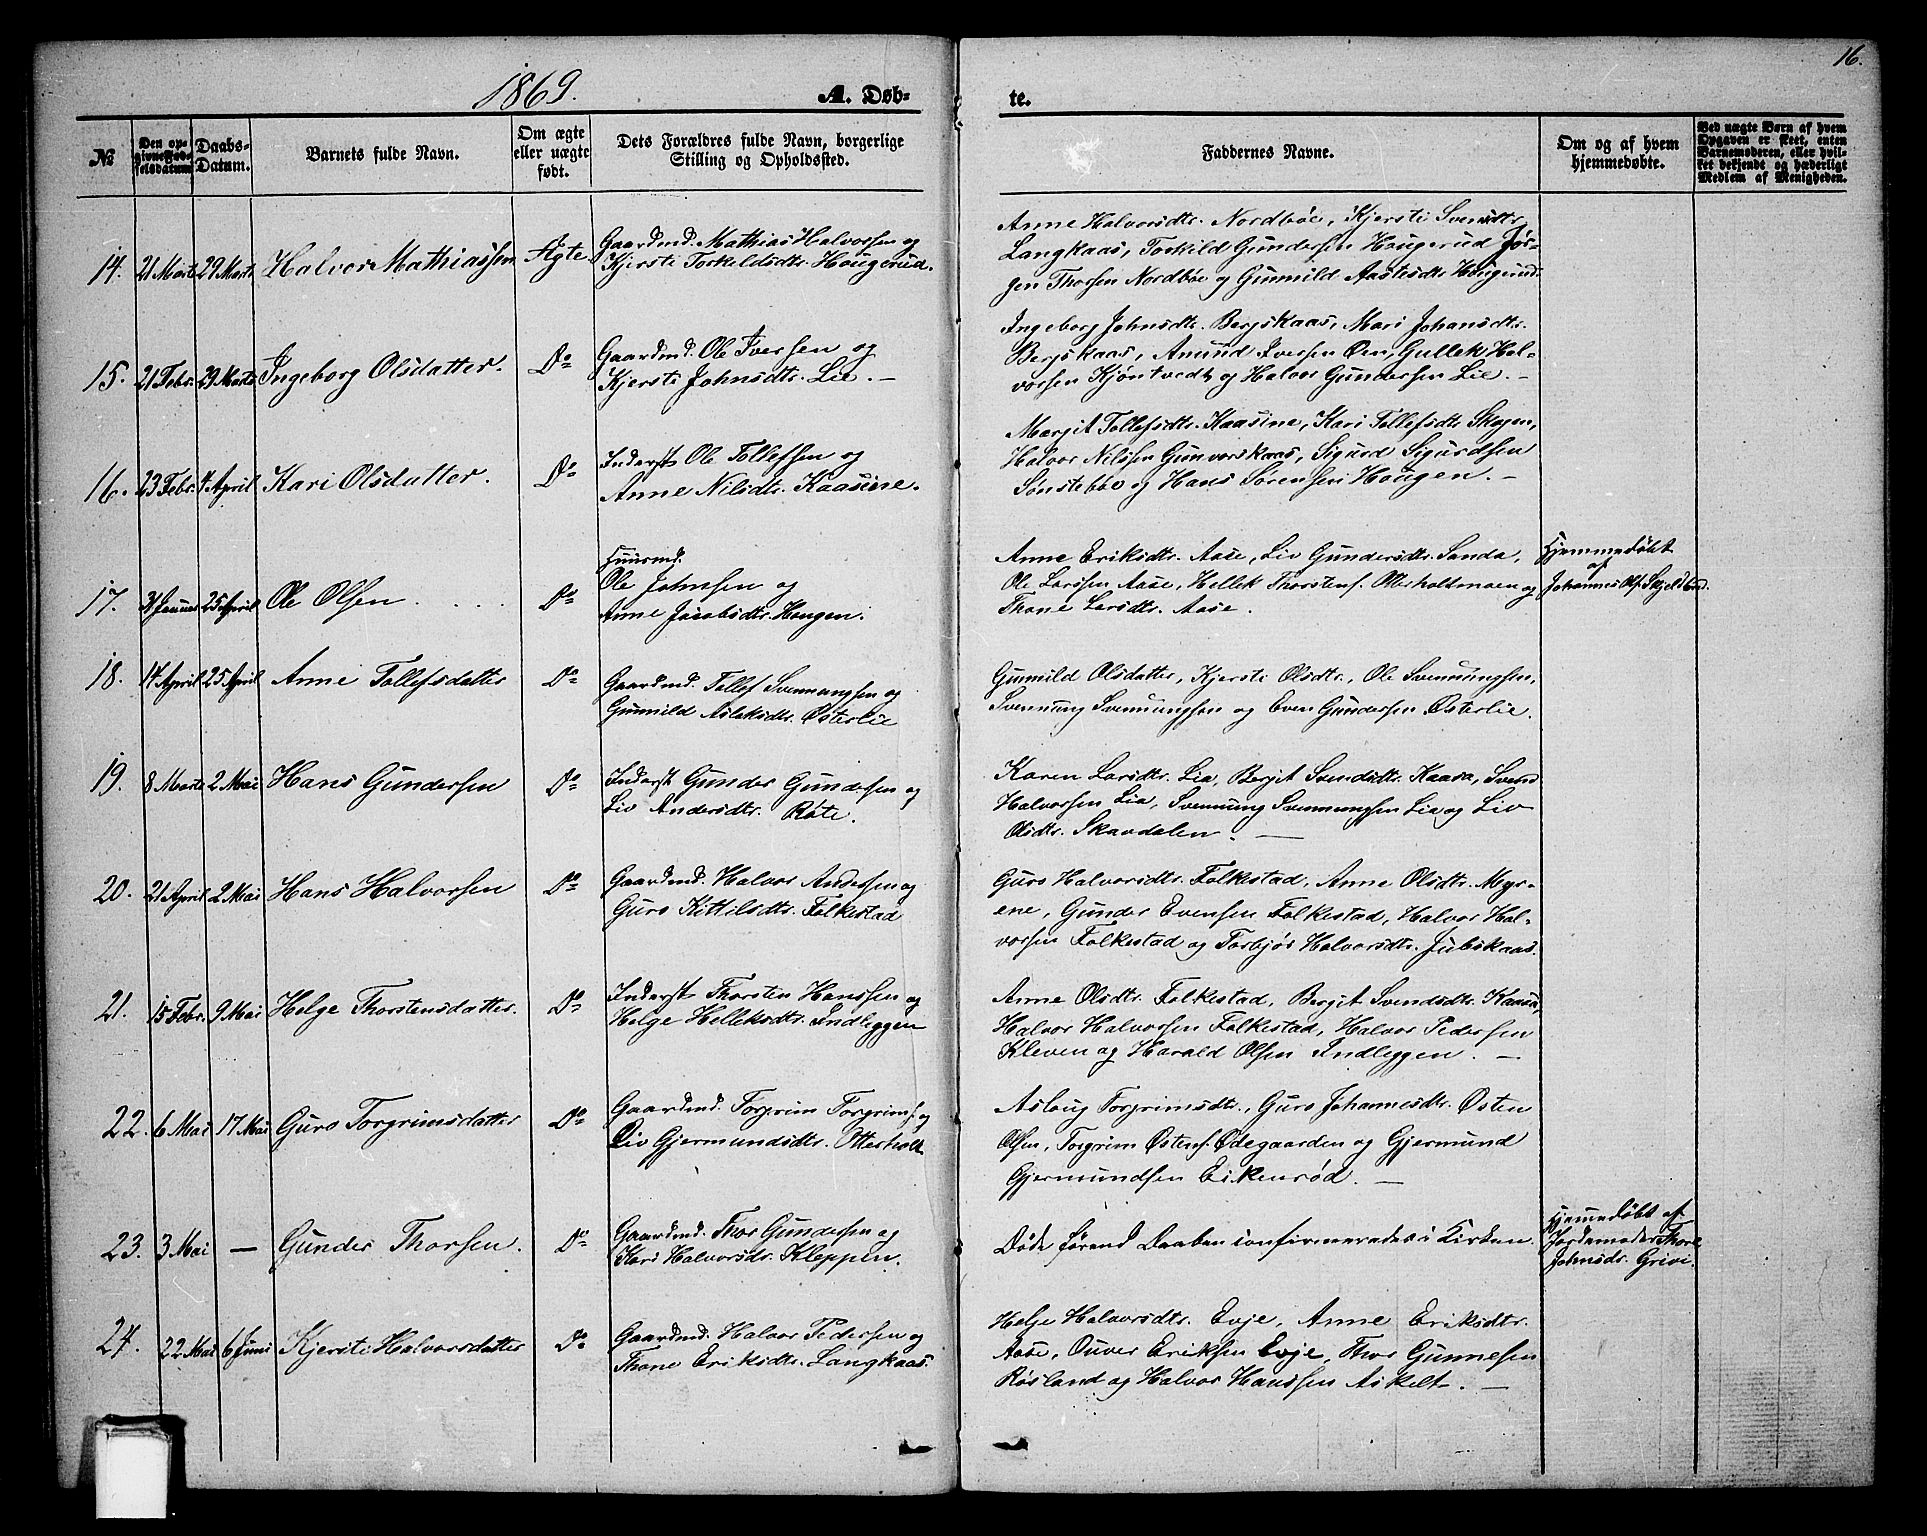 16.
1869.
A. Døb-
te.
No
Den op-
givne Fød-
selsdatum
Daabs-
Datum.
Barnets fulde Navn.
Om ægte
eller uægte
født.
Dets Forældres fulde Navn, borgerlige
Stilling og Opholdssted.
Faddernes Navne.
Om og af hvem
hjemmedøbte.
Ved uægte Børn af hvem
Opgaven er skeet, enten
Barnemoderen, eller hvil-
ket bekjendt og hæderligt
Medlem af Menigheden.
14. 21 Marts 29 Marts Halvor Mathiassen Ægte
Gaardmd. Mathias Halvorsen og
Kjersti Torkeldsdtr. Hougerud.
Anne Halvorsdtr. Nordbøe, Kjersti Svensdtr.
Langkaas, Torkild Gundersen Hougerud Jør-
gen Thorsen Nordbøe og Gunnild Aastesdtr. Hougerud.
15. 21 Febr. 29 Marts Ingeborg Olsdatter. Do
Gaardmd. Ole Iversen og
Kjersti Johnsdtr. Lie. —
Ingeborg Johnsdtr. Bergskaas, Mari Johansdtr.
Bergskaas, Amund Iversen Øen, Gullek Hal-
vorsen Kjøntvedt og Halvor Gundersen Lie. —
16. 23 Febr. 4 April Kari Olsdatter. Do
Inderst Ole Tollefsen og
Anne Nilsdtr. Kaasine.
Margit Tollefsdtr. Kaasine, Kari Tollefsdtr. Skogen,
Halvor Nilssen Gunvorskaas, Sigurd Sigurdsen
Sønstebøe og Hans Sørensen Hougen. —
17. 31 Januar 25 April Ole Olsen . . . . Do
Huusmd.
Ole Johnsen og
Anne Jacobsdtr. Hougen.
Anne Eriksdtr. Aase, Liv Gundersdtr. Sanda,
Ole Larssen Aase, Hellek Thorstens. Otterholtmoen og
Thone Larsdtr. Aase.
Hjemmedøbt
af
Johannes Ols. Skjelbred.
18. 14 April 25 April Anne Tollefsdatter Do
Gaardmd. Tollef Svennungsen og
Gunnild Aslaksdtr. Østerlie
Gunnild Olsdatter, Kjersti Olsdtr., Ole Svennungsen,
Svennung Svennungsen og Even Gundersen Østerlie.
19. 8 Marts 2 Mai Hans Gundersen Do
Inderst Gunder Gundersen og
Liv Andersdtr. Røte.
Karen Larsdtr. Lia, Bergit Svendsdtr. Kaasa, Svend
Halvorsen Lia, Svennung Svennungsen Lia og Liv
Olsdtr. Skardalen. —
20. 21 April 2 Mai Hans Halvorsen Do
Gaardmd. Halvor Andersen og
Guro Kittilsdtr. Folkestad
Guro Halvorsdtr. Folkestad, Anne Olsdtr. Myr-
ene, Gunder Evensen Folkestad, Halvor Hal-
vorsen Folkestad og Torbjør Halvorsdtr. Jubskaas.
21. 15 Febr. 9 Mai Helge Thorstensdatter. Do
Inderst Thorsten Hanssen og
Helge Helleksdtr. Indleggen
Anne Olsdtr. Folkestad, Bergit Svendsdtr. Kaasa,
Halvor Halvorsen Folkestad, Halvor Pedersen
Kleven og Harald Olsen Indleggen. —
22. 6 Mai 17 Mai Guro Torgrimsdatter Do
Gaardmd. Torgrim Torgrims. og
Liv Gjermundsdtr. Otterholt
Aslaug Torgrimsdtr., Guro Johannesdtr. Østen
Olsen, Torgrim Østens. Ødegaarden og Gjermund
Gjermundsen Eikenrød. —
23. 3 Mai — Gunder Thorsen. Do
Gaardmd. Thor Gundersen og
Kari Halvorsdr. Kleppen.
Døde førend Daaben confirmeredes i Kirken.
Hjemmedøbt af
Jordemoder Thone
Johnsdr. Grivi.
24. 22 Mai 6 Juni Kjersti Halvorsdatter Do
Gaardmd. Halvor Pedersen og
Thone Eriksdtr. Langkaas.
Helge Halvorsdtr. Evje, Anne Eriksdtr.
Aase, Ouver Eriksen Evje, Thor Gunnesen
Røsland og Halvor Hanssen Askelt. —